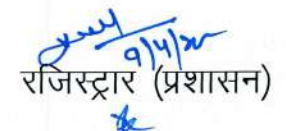 9/4/20
रजिस्ट्रार (प्रशासन)